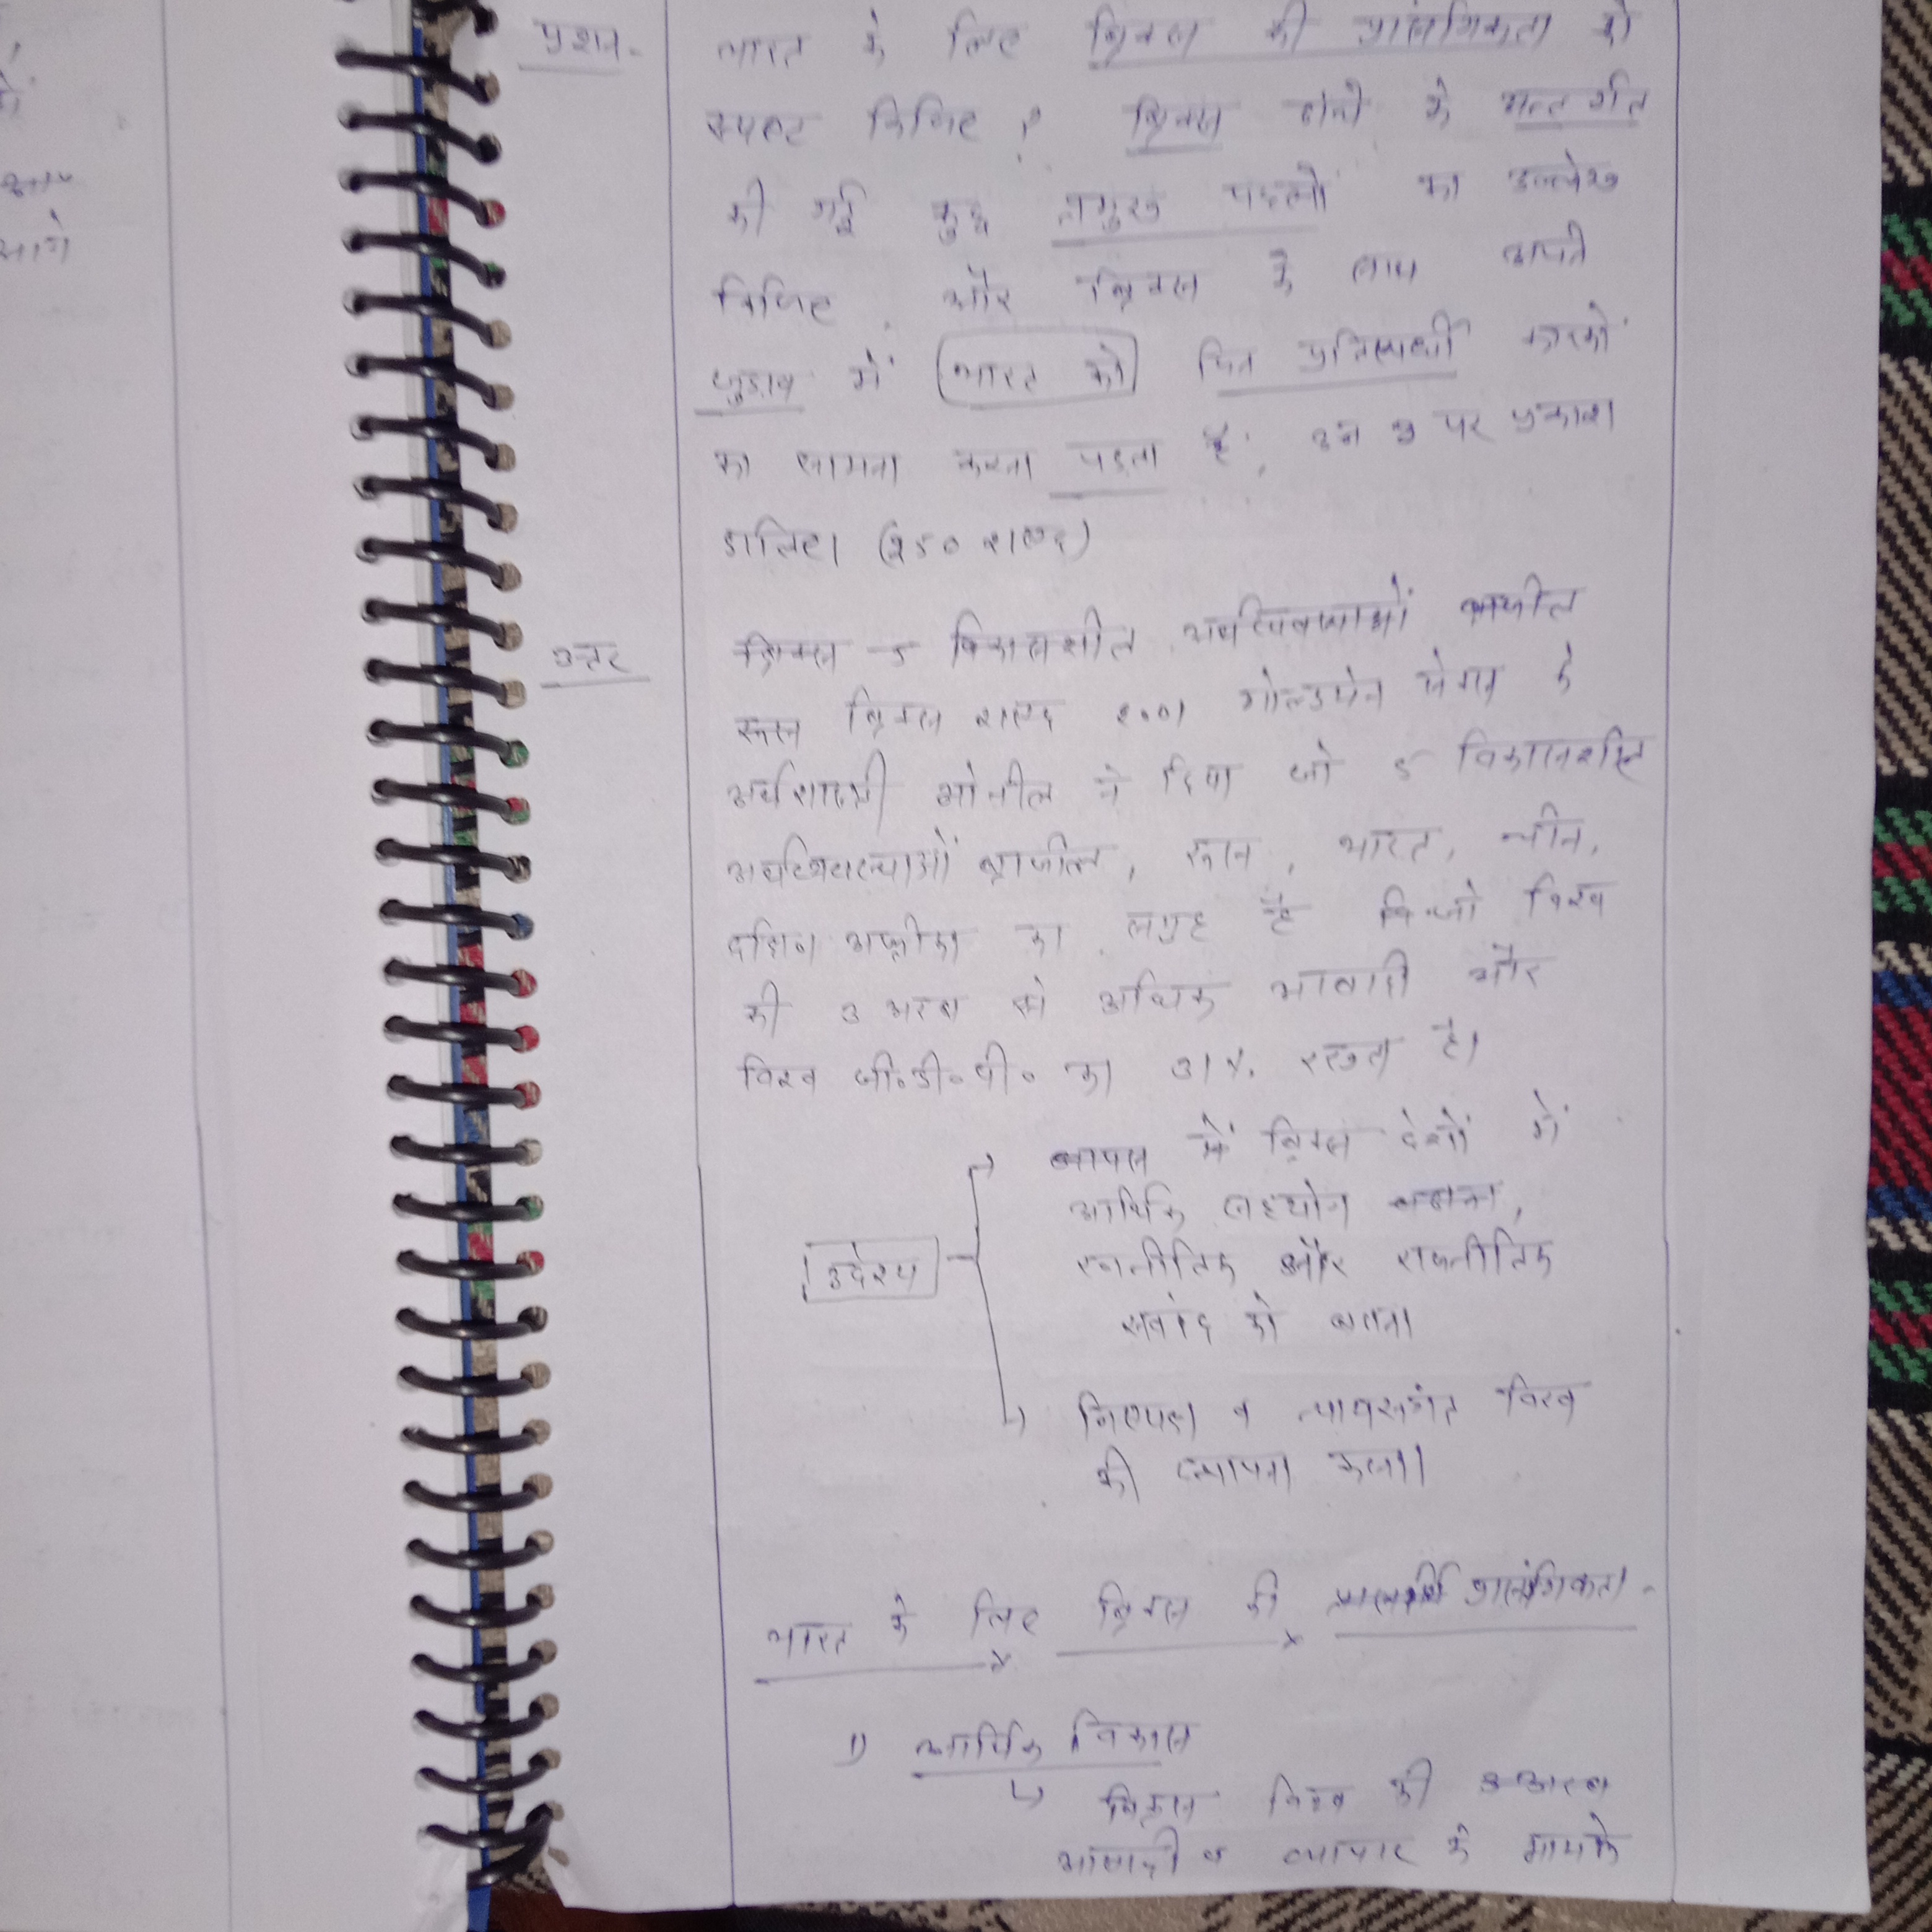 प्रश्न-
भारत के लिए ब्रिक्स की प्रासंगिकता को
स्पष्ट किजिए ? ब्रिक्स ढांचे के अन्तर्गत
की गई कुछ प्रमुख पहलों का उल्लेख
किजिए और ब्रिक्स के साथ अपने
जुडाव में भारत को जिन प्रतिस्पर्धी कारकों
का सामना करना पडता है, उन पर प्रकाश
डालिए। (250 शब्द)
उत्तर
ब्रिक्स 5 विकासशील अर्थव्यवस्थाओं ब्राजील
रूस ब्रिक्स शब्द 2001 गोल्डमेन सेक्स के
अर्थशास्त्री ओ नील ने दिया जो 5 विकासशील
अर्थव्यवस्थाओं ब्राजील, रूस, भारत, चीन,
दक्षिण अफ्रीका का समूह है जो विश्व
की 3 अरब से अधिक आबादी और
विश्व जी॰डी॰पी॰ का 31%. रखता है।
आपस में ब्रिक्स देशों में
आर्थिक सहयोग बढाना,
उदेश्य
रणनीतिक और राजनीतिक
सवांद को बढाना
निष्पक्ष व न्यायसंगत विश्व
की स्थापना करना।
भारत के लिए ब्रिक्स की प्रासंगिकता-
1) आर्थिक विकास
ब्रिक्स विश्व की 3 अरब
आबादी व व्यापार के मामले